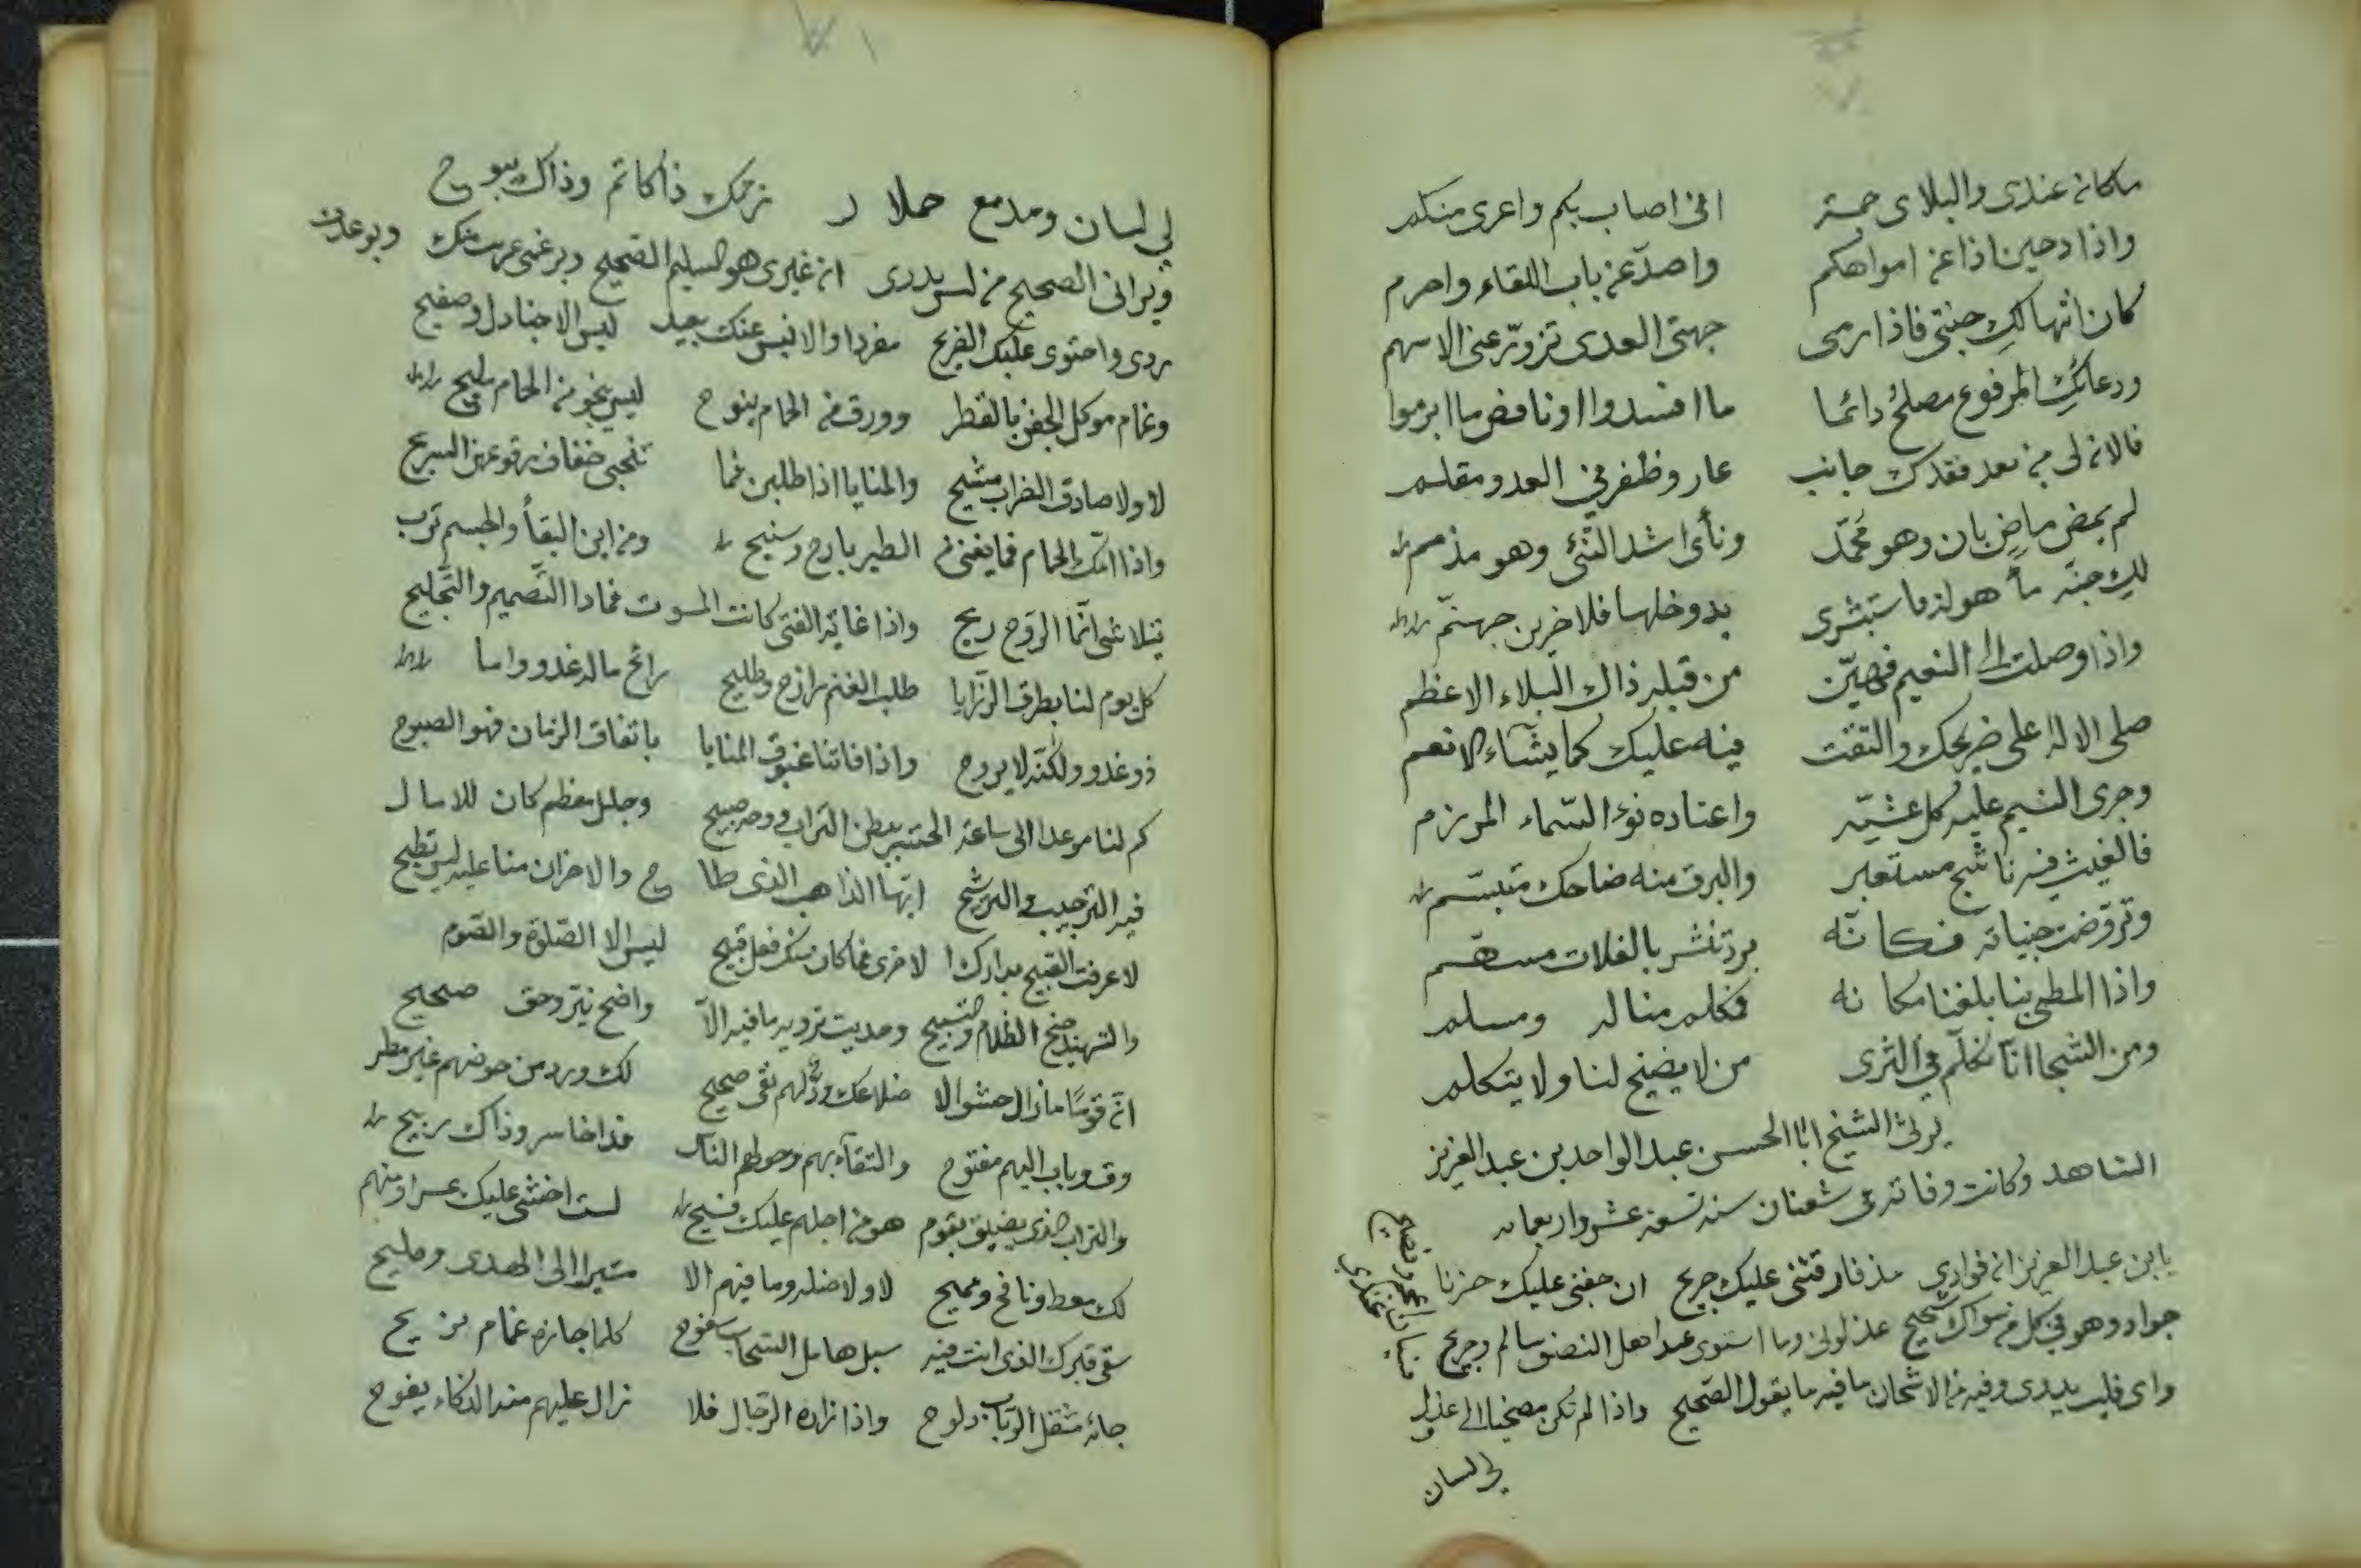 مكانه عندى والبلاى حمتر انى اصاب بكم واعرى منكم
واذا دحينا ذا عن امواهكم واصدّ عن باب اللقاء واحرم
كان انتها لكِ جنتى فاذا رمى جهتى العدى تزورّ عنى الاسهم
ودعائكِ المرفوع مصلحٌ دائما ما افسدوا او ناقض ما ابرموا
فالان لى من بعد فقدك جانب عار وظفر فى العدو مقلم
لم يمض ماضٍ بان وهو محمّد ونأى اشد النئى وهو مذمم
لكِ جنة مأهولة فاستبشرى بدوخلها فلاخرين جهنّم
واذا وصلت الى النعيم فهيّن من قبله ذاك البلاء الاعظم
صلى الاله على ضريحك والتقت فيه عليك كما يشاء الانعم
وجرى النسيم عليه كل عشيّة واعتاده نوء السّماء المرزم
فالغيث فيه ناشج مستعبر والبرق منه ضاحك متبسّم
وتروّضت جنباته فكانّه برد تنشر بالفلات مسهّم
واذا المطى بنا بلغنا مكانه فمكلم منا له ومسلم
ومن الشجا انا نكلّم فى الثرى من لا يضيخ لنا ولا يتكلم
يرثى الشيخ ابا الحسن عبد الواحد بن عبد العزيز
الشاهد وكانت وفاته فى شعبان سنة تسعة عشر واربعمايه
يابن عبد العزيز ان فوادى مذ فارقتنى عليك جريح ان جفنى عليك حزنا
جواد وهو فى كل من سواك شحيح عذلونى وما استوى عدا هل النصف سالم وجريح
واى قلب يدوى وفيه من الاشجان ما فيه ما يقول الصحيح واذا لم تكن مصخيا الى عذل
لى لسان
لى لسان ومدمع حملا لـ زمك ذا كاتم وذاك يبوح
ويرانى الصحيح من ليس يدرى ان غيرى هو السليم الصحيح وبرغمى عريت منك وبوعدت
ردى واحتوى عليك الضريح مفردا والانيس عنك بعيد ليس الا جنادل وصفيح
وغمام موكل الجفن بالقطر وورق من الحمام ينوح ليس ينجو من الحمام مليح
لا ولا صادق الضراب مشيح والمنايا اذا طلبن فما تنجى خفاف السريح
واذا امّك الحمام فما يغنى من الطير بارح وسنيح ومن اين البقأ والجسم ترب
يتلاشى انّما الروح ريح واذا غاية الفتى كانت الموت فماذا التصميم والتجليح
كل يوم لنا بطرق الرّزايا طلب الغنم رازح وطليح رائح ماله غدو واما
ذو غدو ولكنّه لا يروح واذا فاتنا غبوق المنايا باتفاق الزمان فهو الصبوح
كم لنا موعدا الى ساعة الحتـ ببطن التراب وجه صبيح وجليل معظم كان للاما لـ
فيه الترجيب والترشيح ايها الذاهب الذى طا ح والاحزان منا عليه ليس تطيح
لا عرفت القبيح بدارك الاخرى فما كان منك فعل قبيح ليس الا الصّلوة والصّوم
والتسهيد جنح الظلام والتسبيح وحديث ترويه ما فيه الاّ واضح نيّر وحق صحيح
انّ قومًا ما زال حشو الا ضلاعك ودّ لهم نقى صحيح لك ورد من حوضهم غير مطر
وق وباب اليهم مفتوح والتقاء بهم وحولهم النّاس فذا خاسر وذاك ربيح
والتراب الذى يضيق بقوم هو من اجلهم عليك فسيح لست اخشى عليك عسرا ومنهم
لك معط ونافح ومميح لا ولا ضلة وما فيهم الا مشير الى الهدى ومليح
سقى قبرك الذى انت فيه سبل هامل السّحاب سفوح كلما جازه غمام نزيح
جائه مثقل الرّباب دلوح واذا زاره الرّجال فلا زال عليهم منه الذكاء يفوح